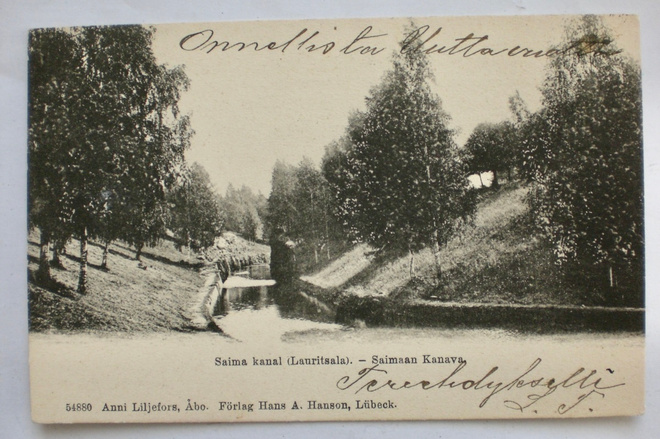 Onnellista Uutta vuotta
Saima kanal (Lauritsala). – Saimaan Kanava.
Terveydyksellä
L. T.
54880 Anni Liljefors, Åbo. Förlag Hans A. Hanson, Lübeck.